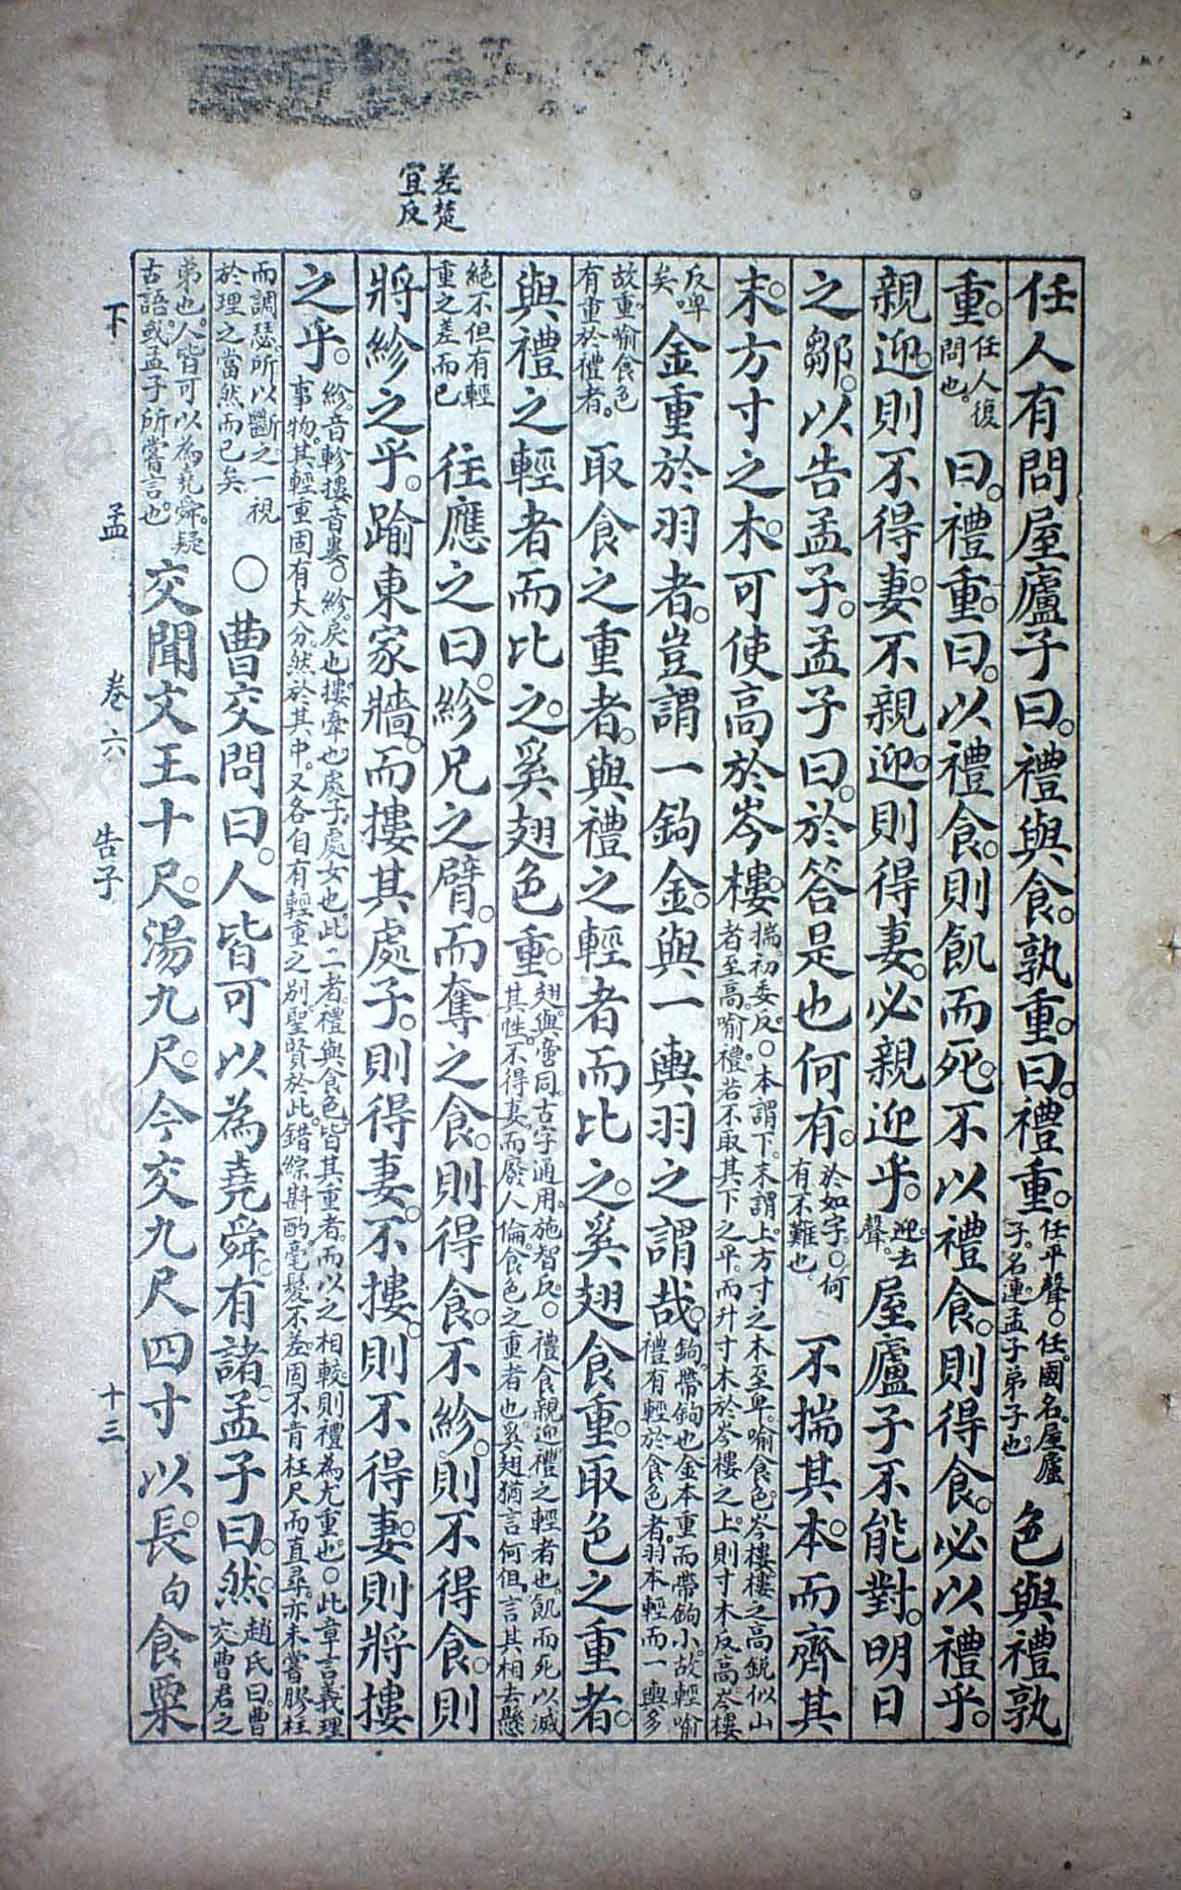 差楚
宜反
任人有問屋廬子曰。禮與食。孰重。曰。禮重。任平聲。○任。國名。屋廬子。名連。孟子弟子也。色與禮孰
重。任人復問也。曰。禮重。曰。以禮食。則飢而死。不以禮食。則得食。必以禮乎。
親迎。則不得妻。不親迎。則得妻。必親迎乎。迎。去聲。屋廬子不能對。明日
之鄒。以告孟子。孟子曰。於答是也何有。於如字。○何有。不難也。不揣其本。而齊其
末。方寸之木。可使高於岑樓。揣。初委反。○本謂下。末謂上。方寸之木至卑。喻食色。岑樓。樓之高銳似山者。至高。喻禮。若不取其下之平。而升寸木於岑樓之上。則寸木反高。岑樓
反卑矣。金重於羽者。豈謂一鉤金。與一輿羽之謂哉。鉤。帶鉤也。金本重而帶鉤小。故輕。喻禮有輕於食色者。羽本輕而一輿多
故重。喻食色有重於禮者。取食之重者。與禮之輕者而比之。奚翅食重。取色之重者。
與禮之輕者而比之。奚翅色重。翅。與啻同。古字通用。施智反。○禮食親迎。禮之輕者也。飢而死以滅其性。不得妻而廢人倫。食色之重者也。奚翅。猶言何但。言其相去懸
絕。不但有輕重之差而已。往應之曰。紾兄之臂。而奪之食。則得食。不紾。則不得食。則
將紾之乎。踰東家牆。而摟其處子。則得妻。不摟。則不得妻。則將摟
之乎。紾。音軫。摟。音婁。○紾。戾也。摟。牽也。處子。處女也。此二者。禮與食色。皆其重者。而以之相較。則禮為尤重也。○此章言義理事物。其輕重固有大分。然於其中。又各自有輕重之別。聖賢於此。錯綜斟酌。毫髮不差。固不肯枉尺而直尋。亦未嘗膠柱
而調瑟。所以斷之。一視於理之當然而已矣。○曹交問曰。人皆可以為堯舜。有諸。孟子曰。然。趙氏曰。曹交。曹君之
弟也。人皆可以為堯舜。疑古語。或孟子所嘗言也。交聞文王十尺。湯九尺。今交九尺四寸以長。句食粟
下　孟　卷六　告子　十三